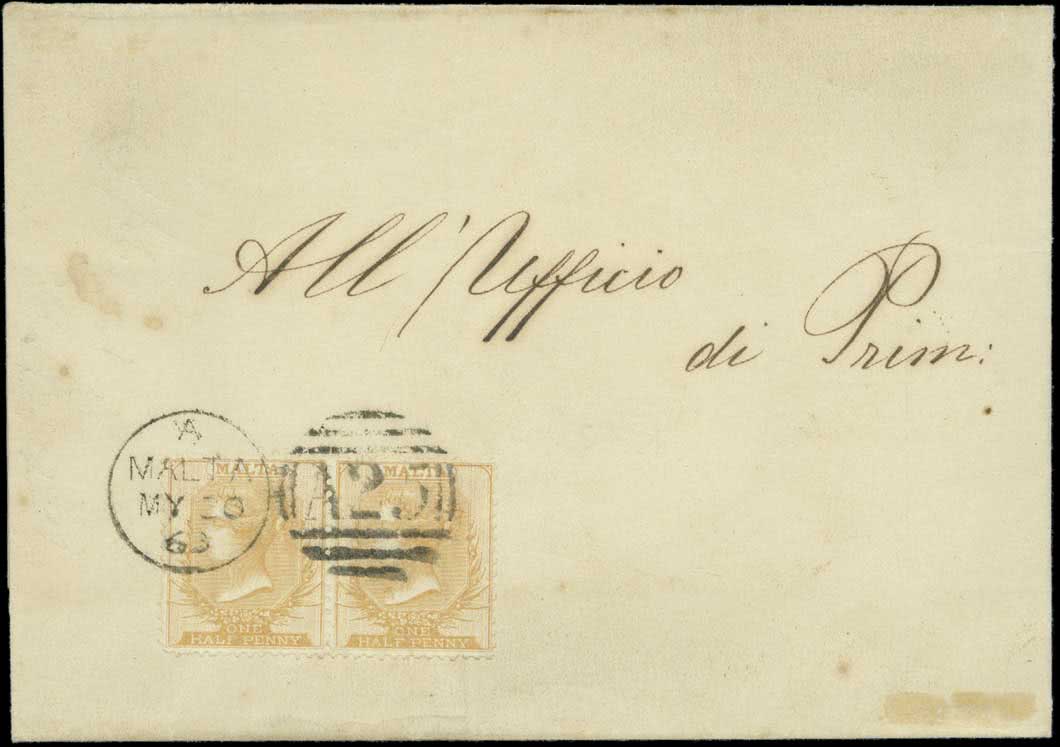 All'Ufficio
di Prim:
A
MALTA
MY 20
63
A25
MALTA
ONE
HALF PENNY
MALTA
ONE
HALF PENNY